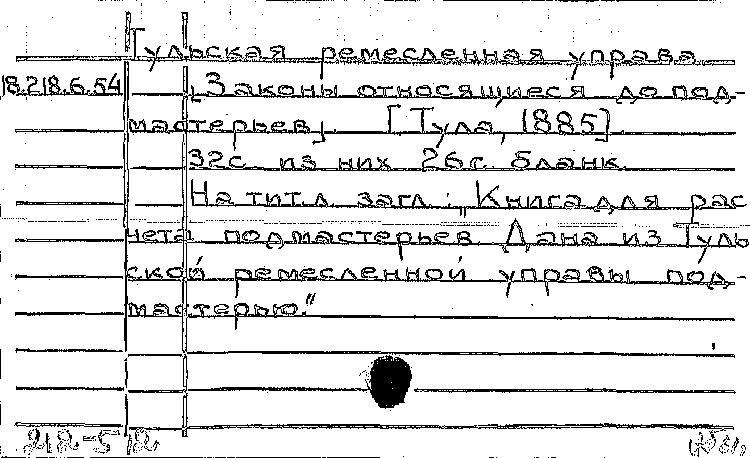 Тульская ремесленная управа
18.218.6.54 [Законы относящиеся до под-
мастерьев]. [Тула, 1885]
32с. из них 26с. бланк.
На тит.л. загл.: „Книга для рас
чета подмастерьев. Дана из Туль
ской ремесленной управы под-
мастерью."
212-512